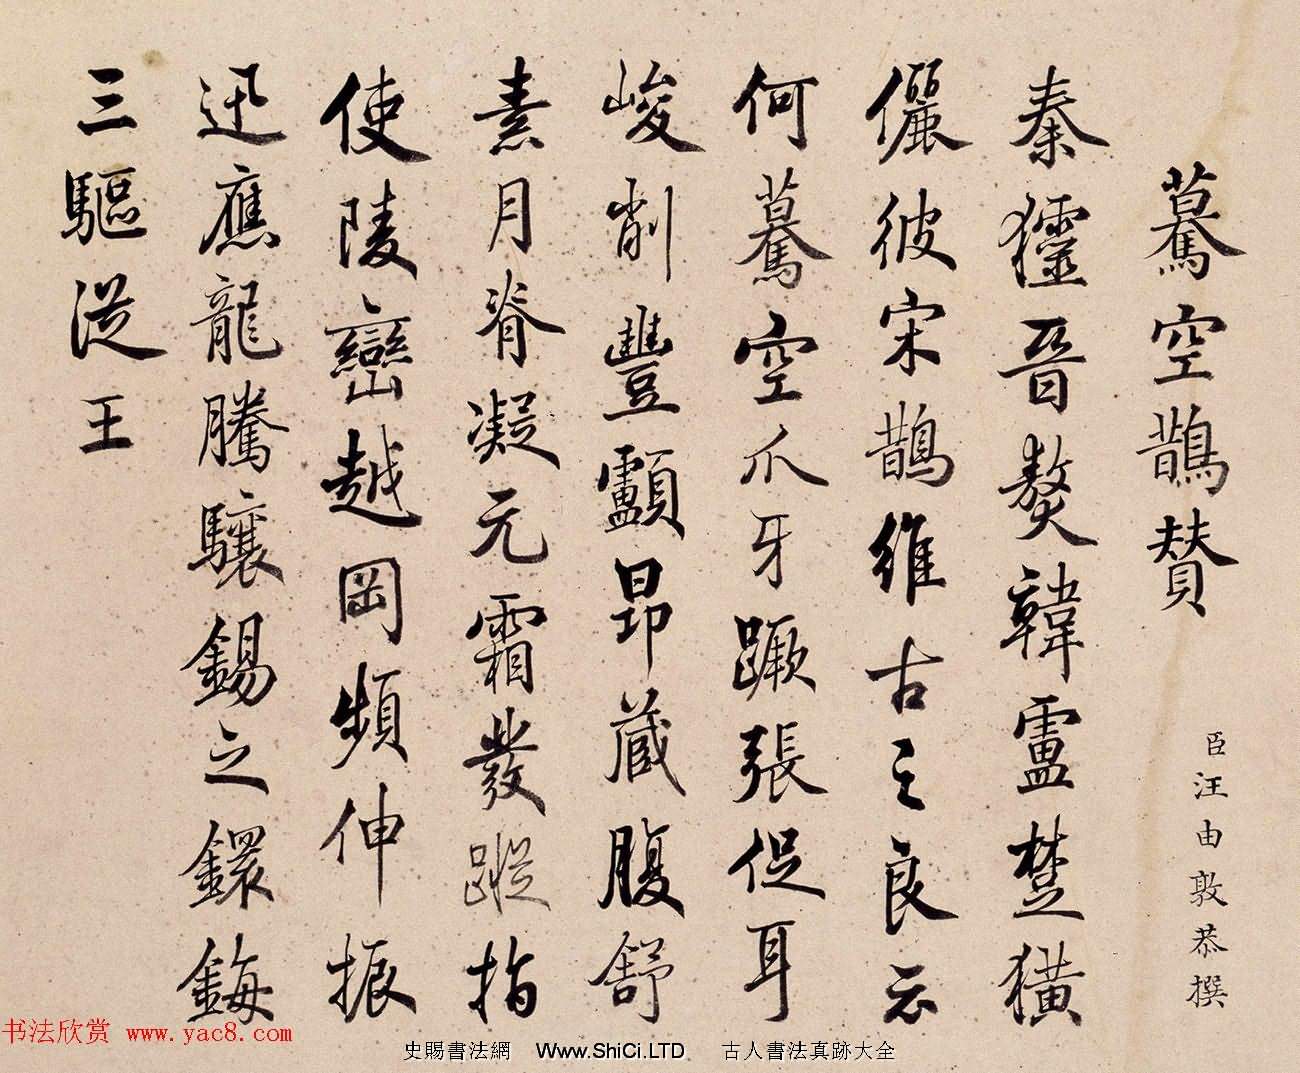 驀空鵲贊
臣汪由敦恭撰
秦獹晉獒韓盧楚獚
儷彼宋鵲維古之良云
何驀空爪牙蹶張促耳
峻削豐顱昂藏腹舒
素月脊凝元霜發蹤指
使陵巒越岡頻伸振
迅應龍騰驤錫之鐶鋂
三驅從王
书法欣赏 www.yac8.com
史賜書法網 Www.ShiCi.LTD 古人書法真跡大全